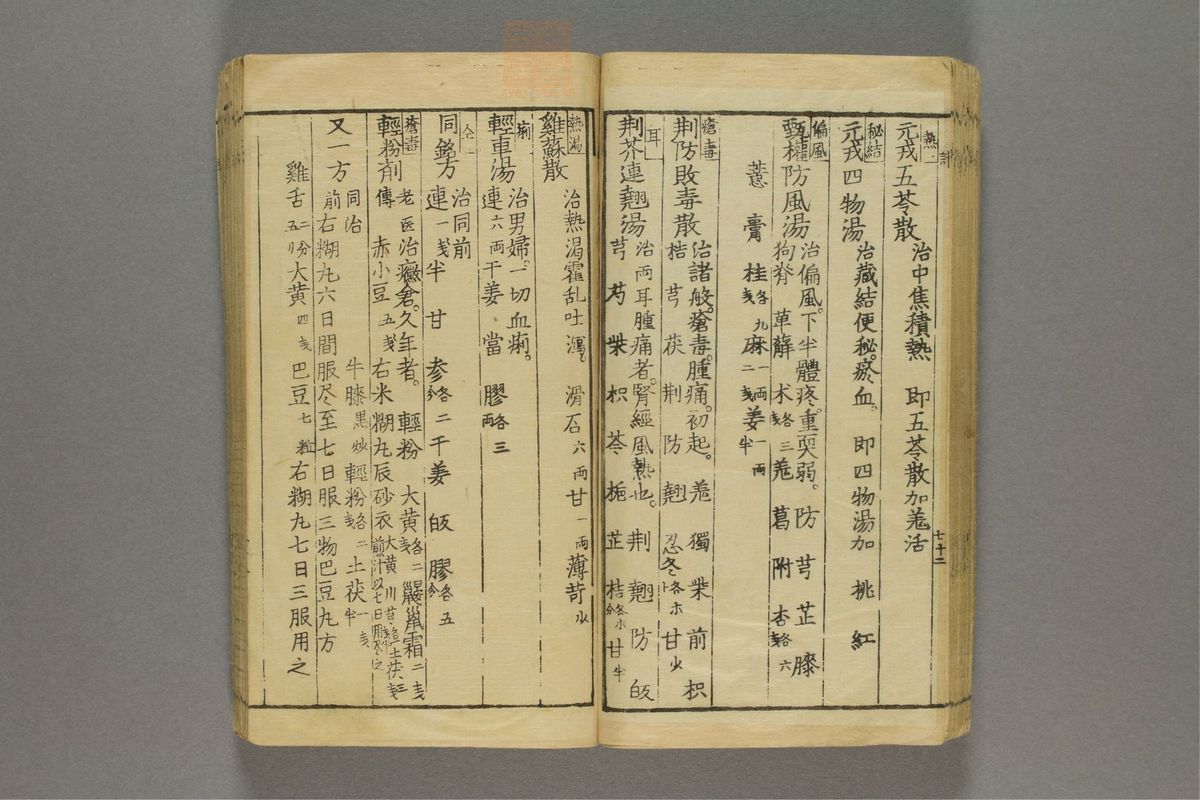 熱
元戎五苓散 治中焦積熱 即五苓散加羗活
秘結
元戎四物湯 治藏結便秘。瘀血。 即四物湯加 桃 紅
偏風
甄權防風湯 治偏風。下半體疼。重耎弱。 防 芎 芷 膝
狗脊 萆薢 术各三戔 羗 葛 附 杏各六戔
薏 膏 桂各九戔 麻一両二戔 姜一両半
瘡毒
荆防敗毒散 治諸般。瘡毒。腫痛。初起。 羗 獨 柴 前 枳
桔 芎 茯 荆 防 翹 忍冬各 甘少
耳
荆芥連翹湯 治両耳腫痛者。腎經風熱也。 荆 翹 防 皈
芎 芍 柴 枳 芩 梔 芷 桔各 甘半
七十二
熱渇
雞蘇散 治熱渇霍乱吐瀉。 滑石六両 甘一両 薄苛少
痢
輕車湯 治男婦。一切血痢。
連六両 干姜 當 膠各三両
仝
同銘方 治同前
連一戔半 甘 参各二分 干姜 皈 膠各五分
瘡毒
輕粉剤 老医傳 治癥瘡。久年者。 輕粉 大黄各二戔 鼹鼠霜二戔
赤小豆五戔 右米糊丸辰砂衣 大黄 川芎 土茯三戔 煎汁以七日服尽之
又一方 同治前 牛膝黒炒 輕粉各二戔 土茯一戔半
右糊丸六日間服尽至七日服三物巴豆丸方
雞舌二分五リ 大黄四戔 巴豆七粒 右糊丸七日三服用之